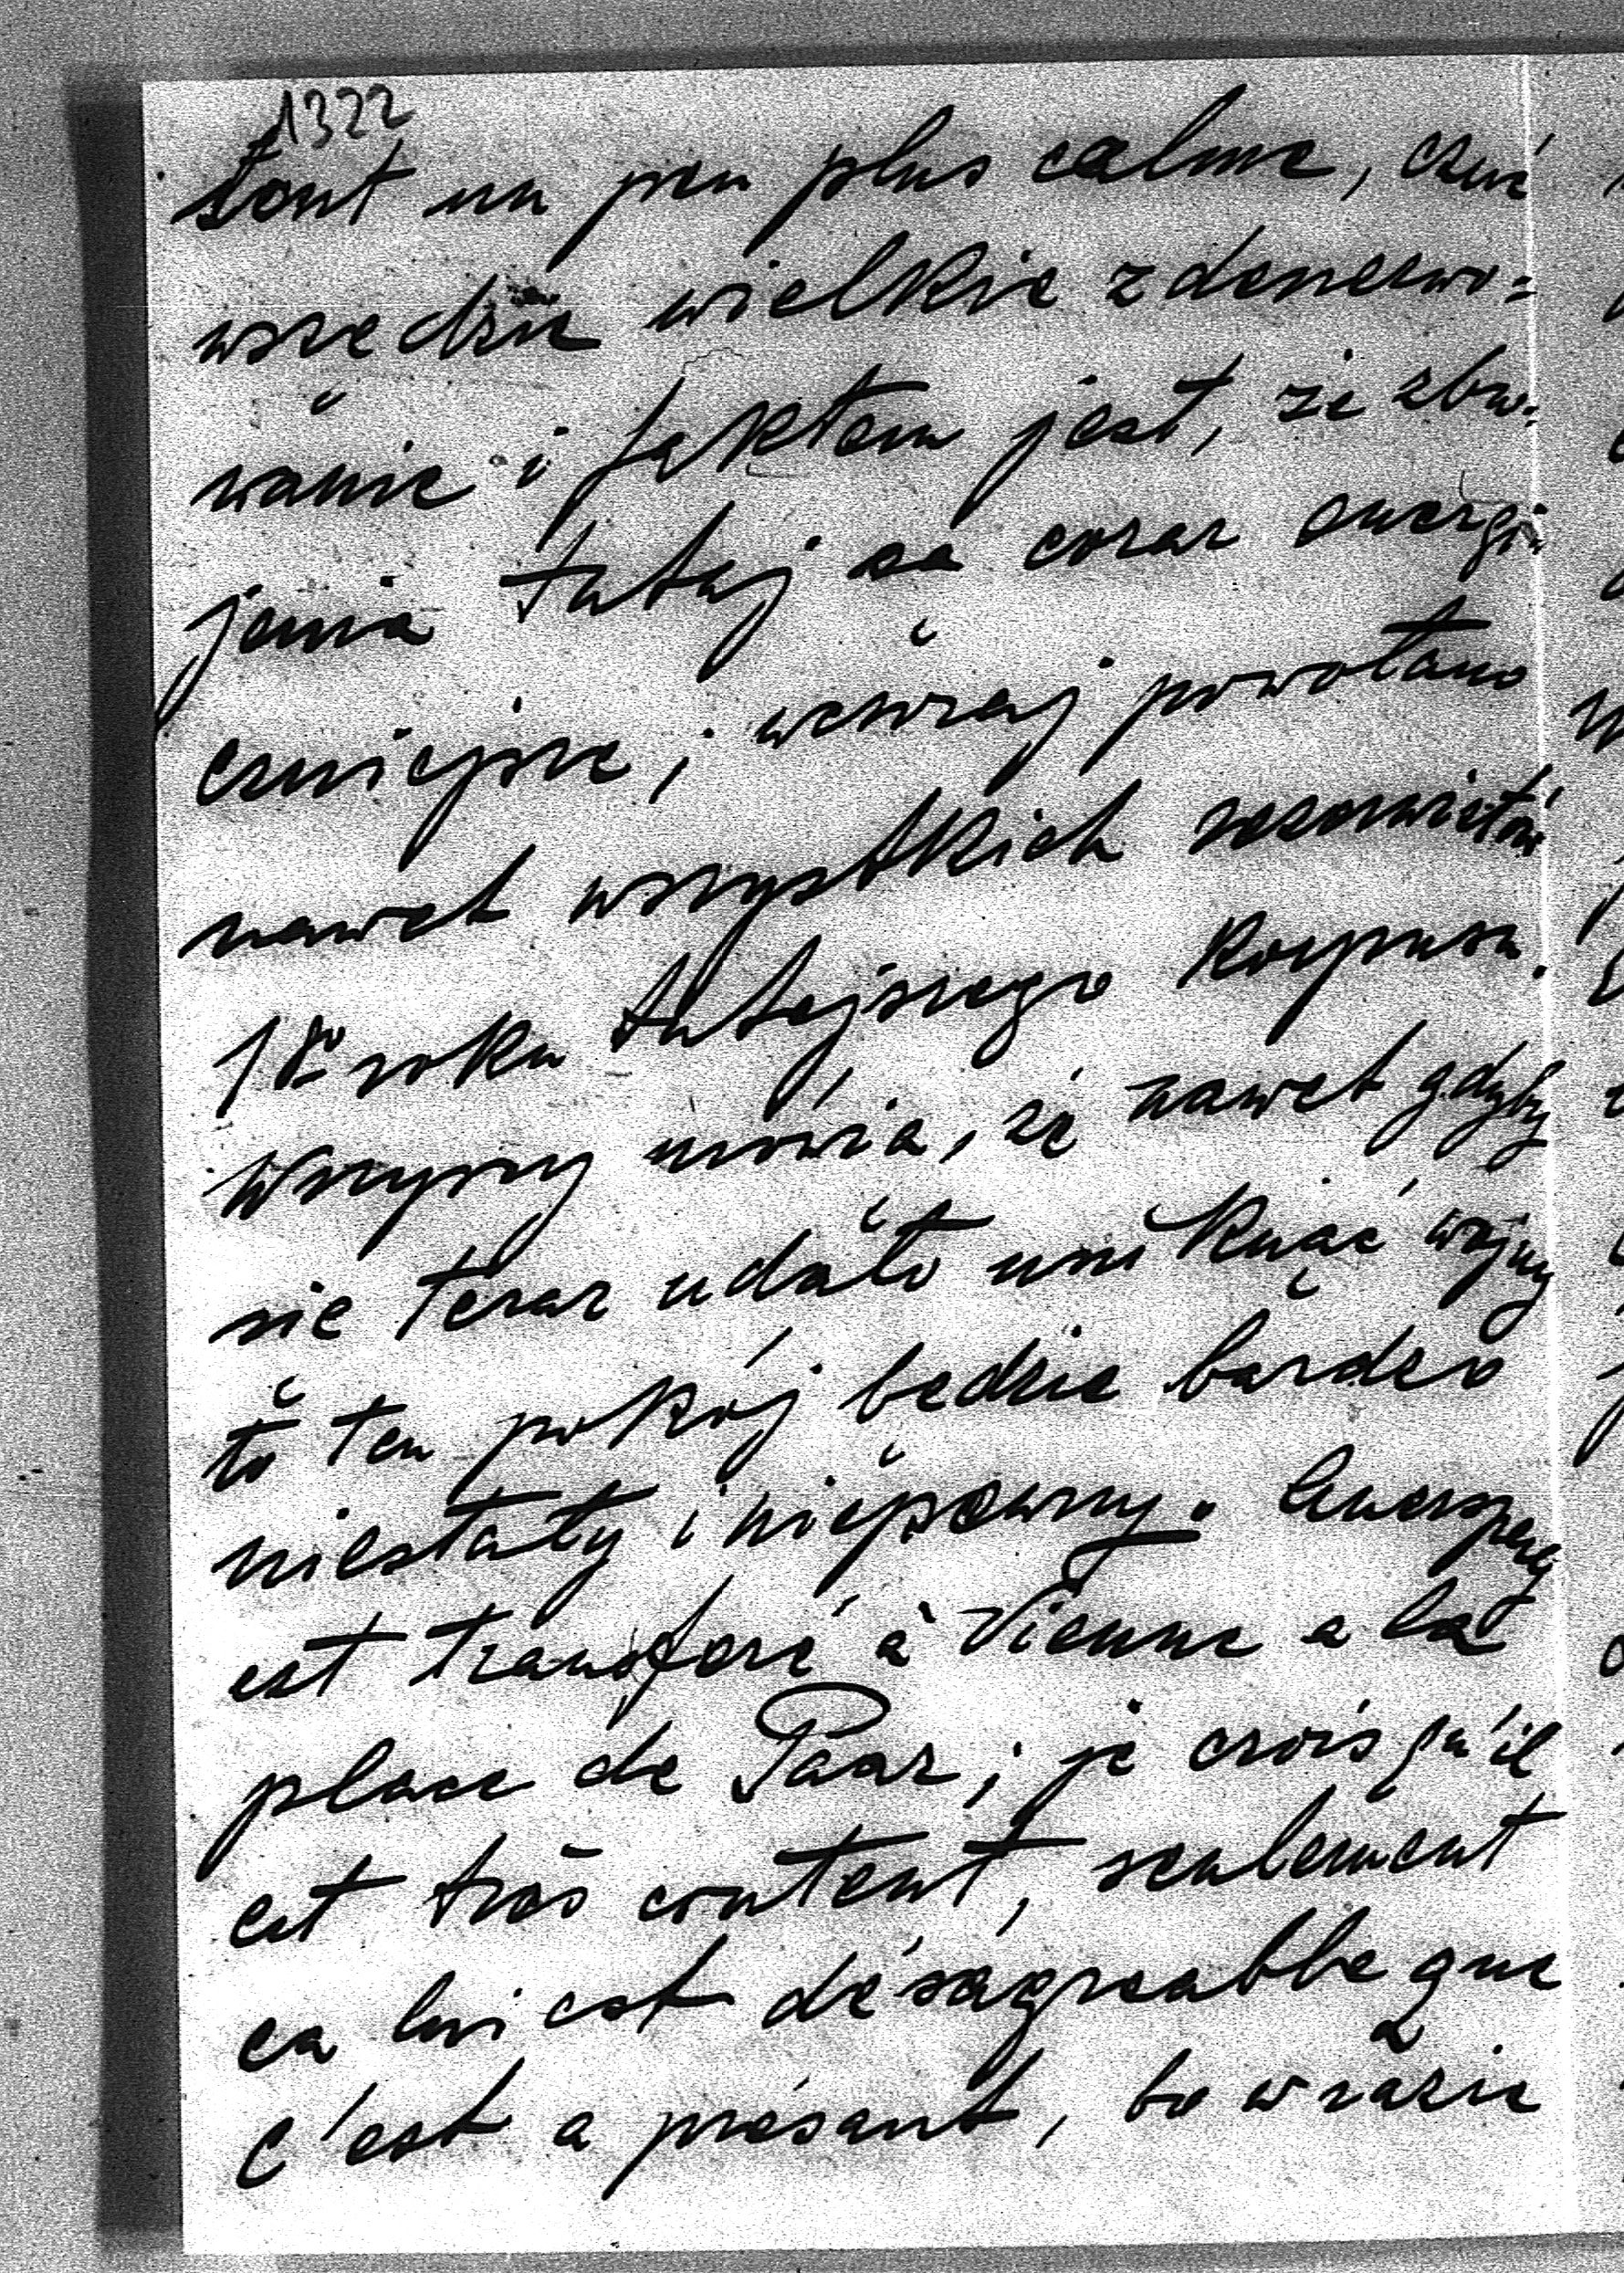 1322
sont un peu plus calme, czuć
wszędzie wielkie zdenerwo=
wanie i faktem jest, że zbro=
jenia tutaj są coraz energi=
czniejsze; wczoraj powołano
nawet wszystkich rezerwistów
1go roku tutejszego korpusu.
Wszyscy mówią, że nawet gdyby
się teraz udało uniknąć wojny
to ten pokój będzie bardzo
niestały i niepewny. Auersperg
est transferé à Vienne a la
place de Paar; je crois qu'il
est très content, seulement
ca lui est désagreable que
c'est a présant, bo w razie